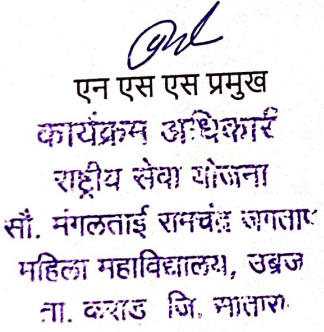 एन एस एस प्रमुख
कार्यक्रम अधिकारी
राष्ट्रीय सेवा योजना
सौ. मंगलताई रामचंद्र जगताप
महिला महाविद्यालय, उंब्रज
ता. कराड जि. सातारा